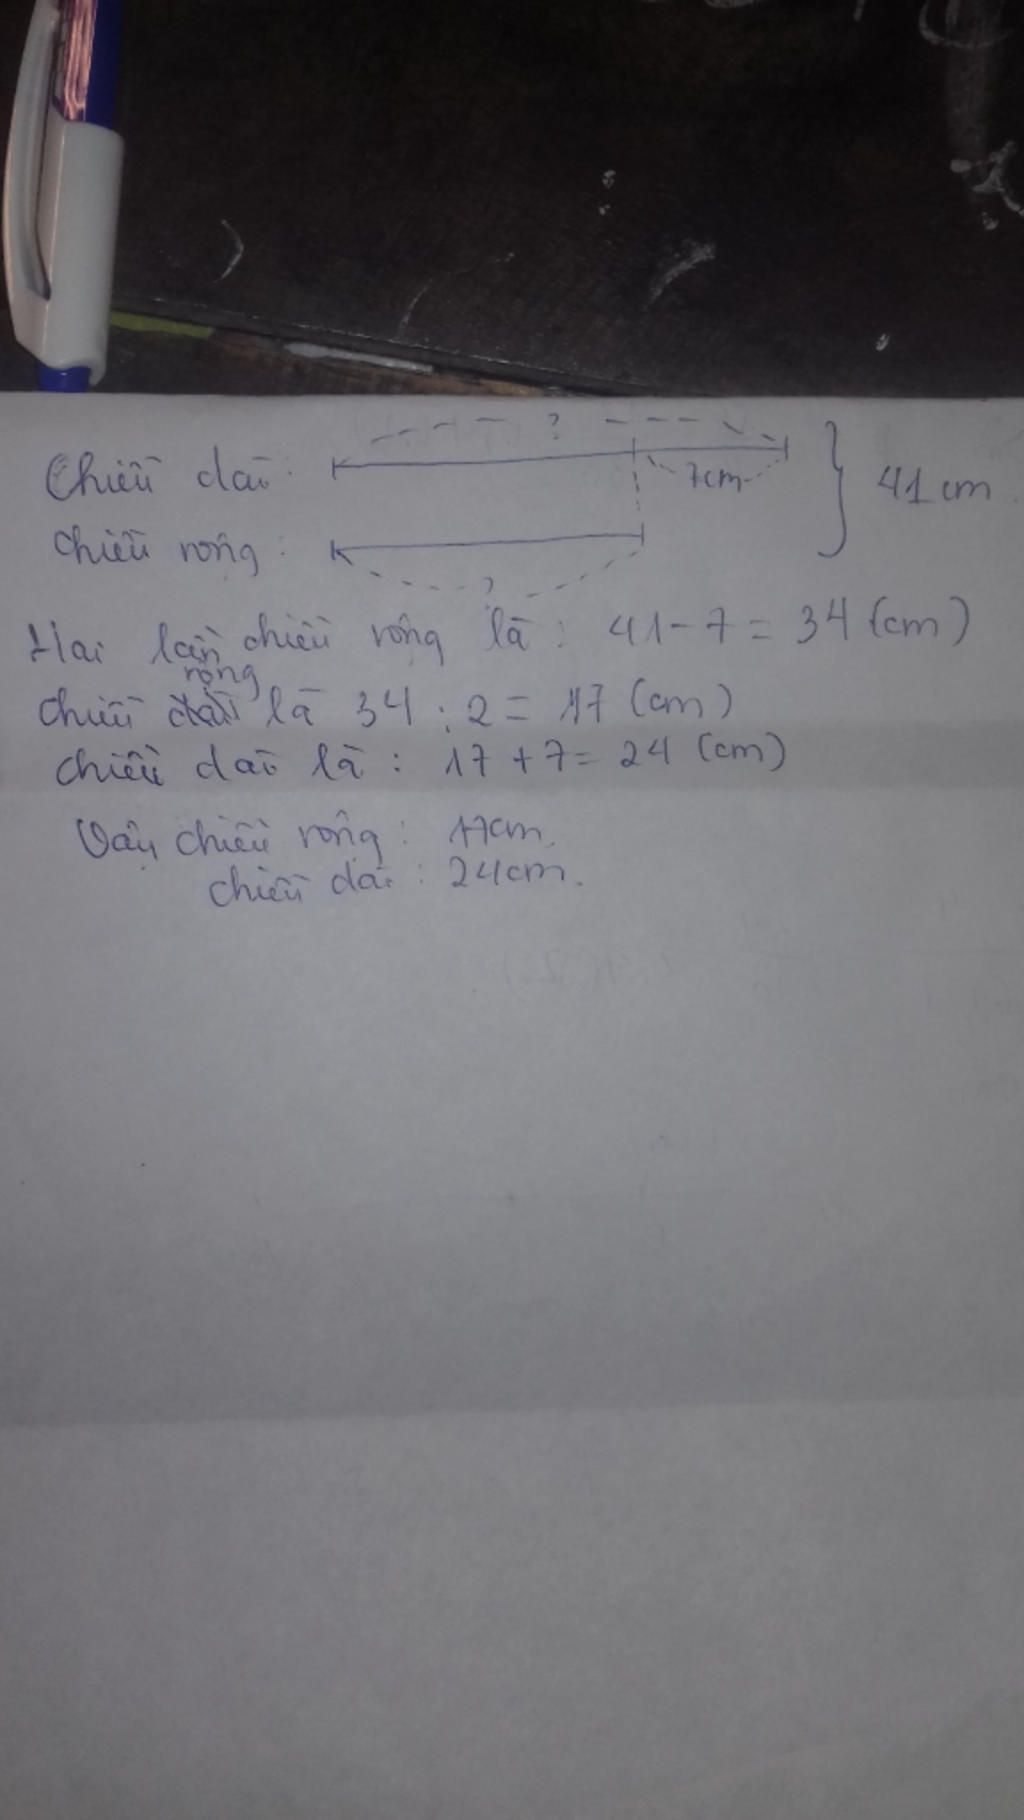 ?
Chiều dài: 7cm } 41cm
Chiều rộng:
?
Hai lần chiều rộng là: 41 - 7 = 34 (cm)
rộng
Chiều là 34 : 2 = 17 (cm)
Chiều dài là: 17 + 7 = 24 (cm)
Vậy chiều rộng: 17cm.
chiều dài: 24cm.